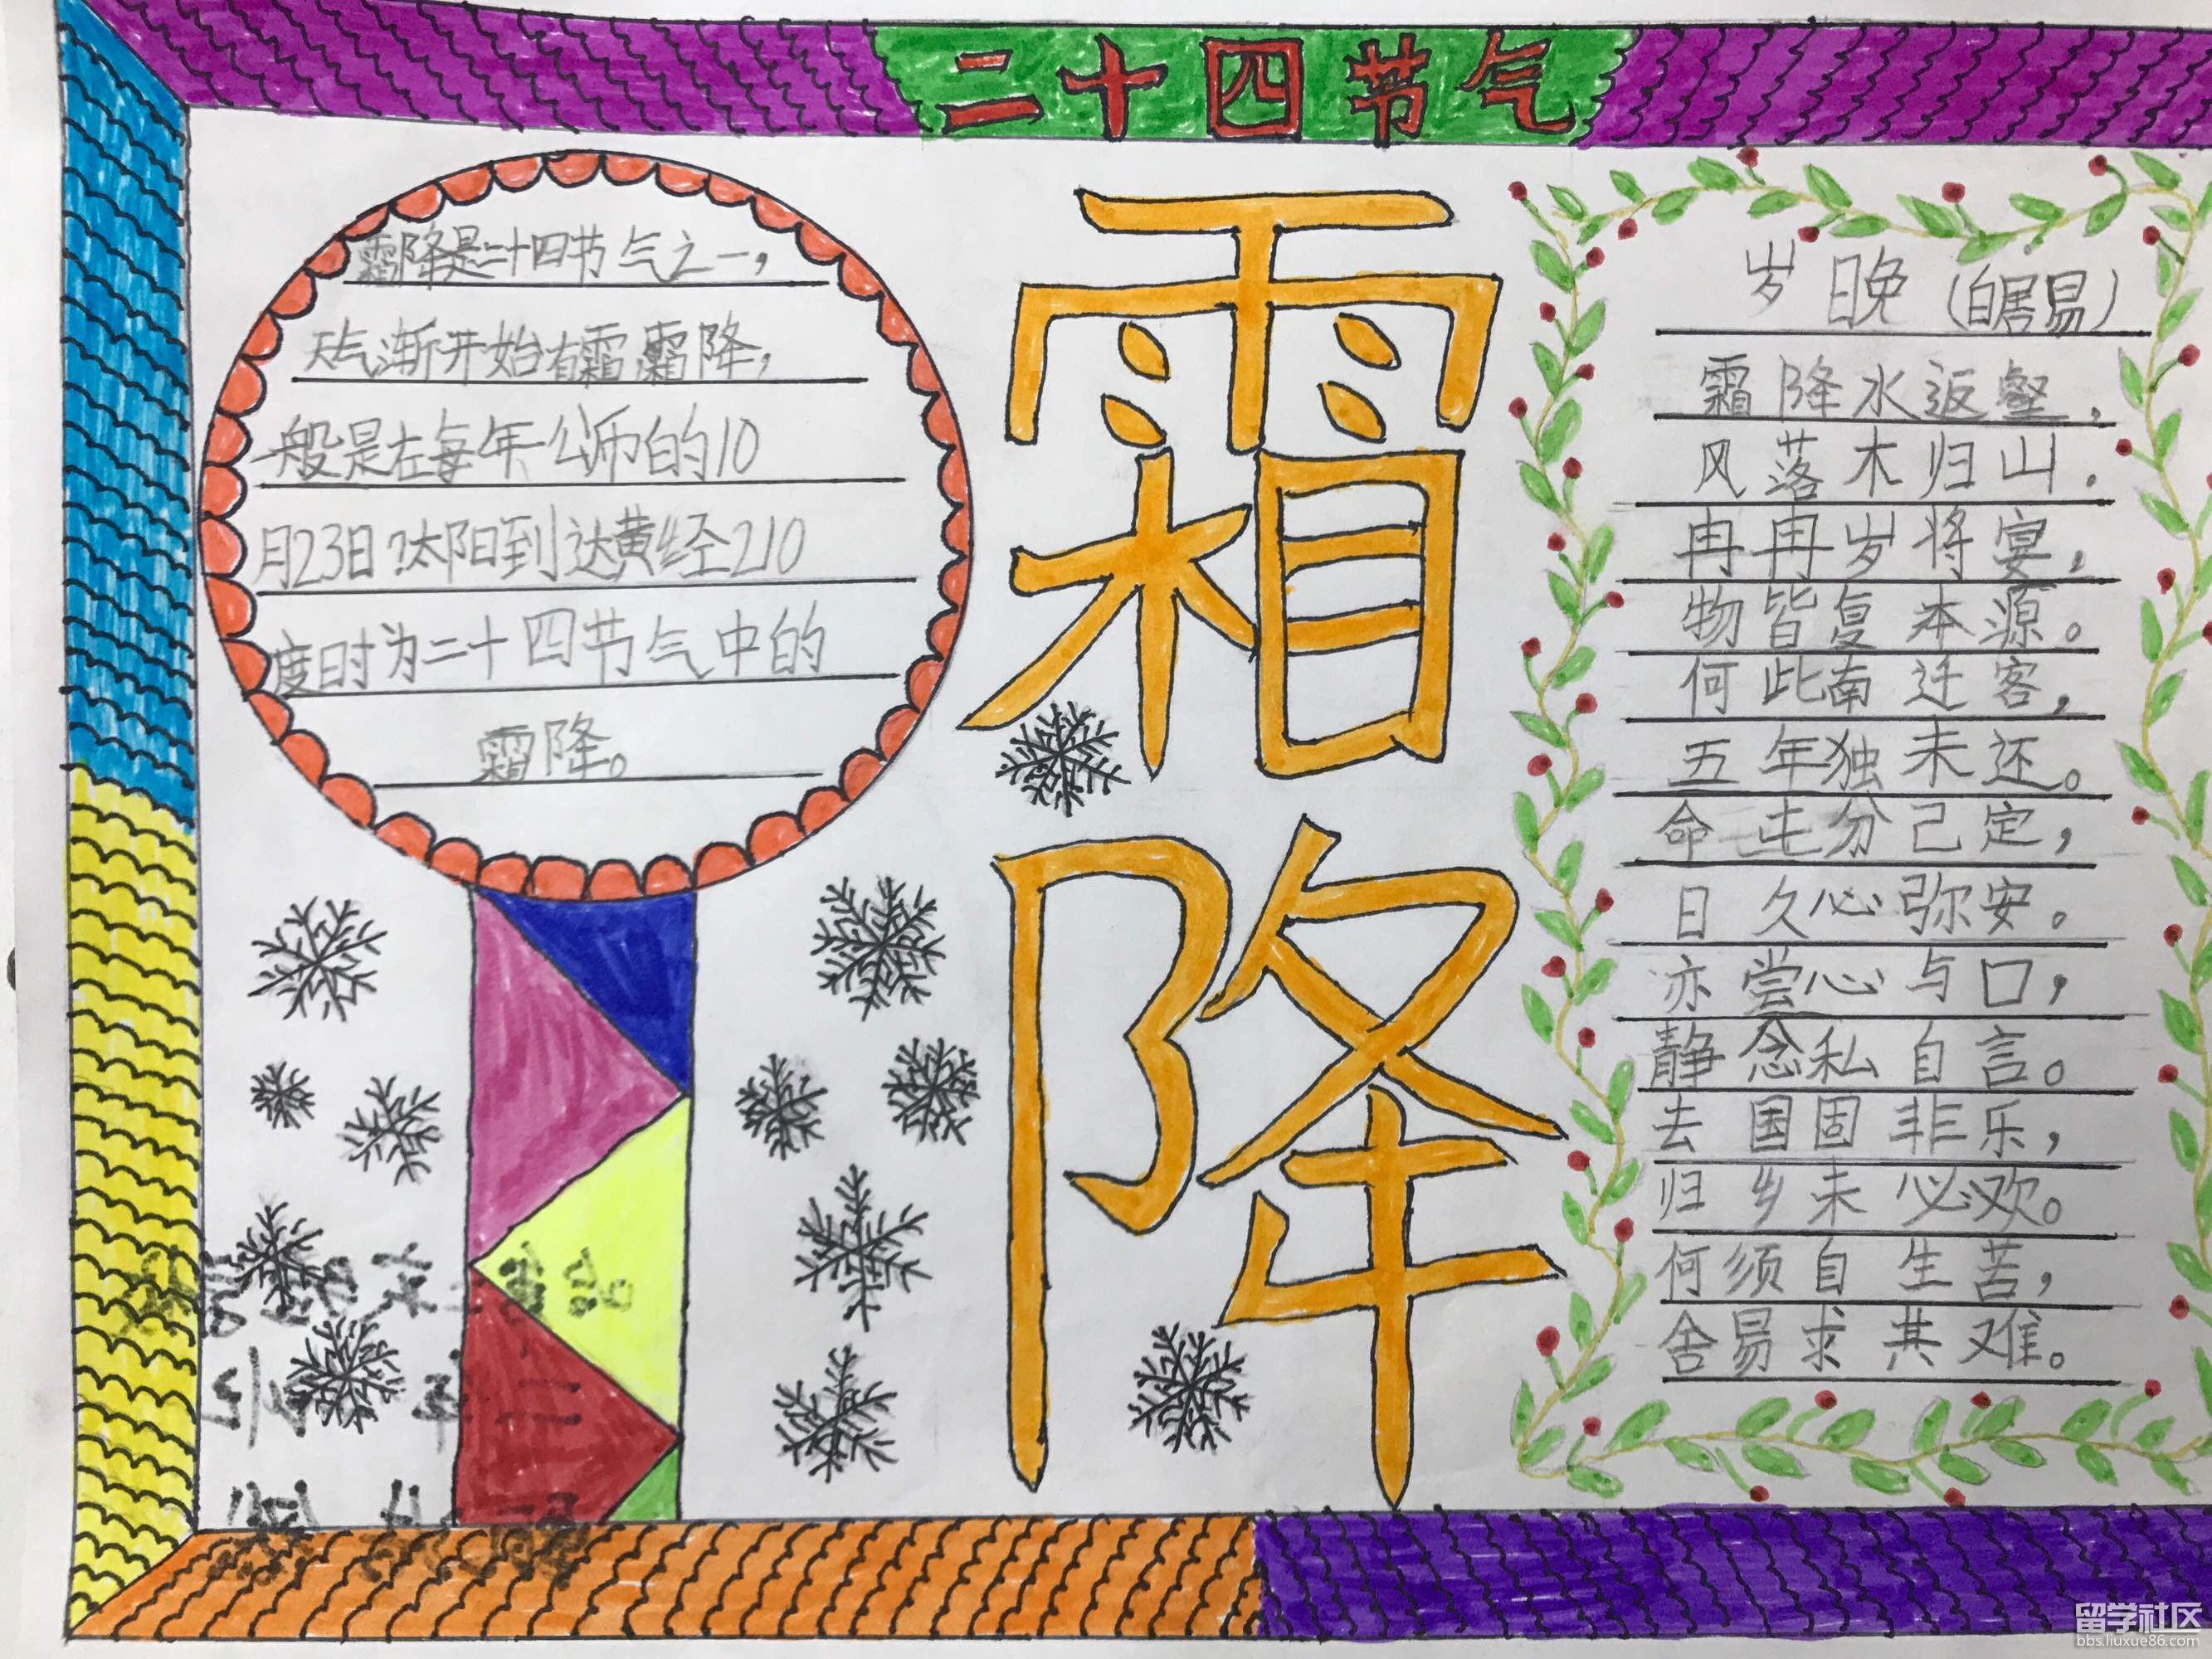 二十四节气
霜降是二十四节气之一，
天气渐开始有霜,霜降，
一般是在每年公历的10
月23日?太阳到达黄经210
度时为二十四节气中的
霜降。
霜降
岁晚（白居易）
霜降水返壑，
风落木归山.
冉冉岁将宴，
物皆复本源。
何此南迁客，
五年独未还。
命屯分己定，
日久心弥安。
亦尝心与口，
静念私自言。
去国固非乐，
归乡未必欢。
何须自生苦，
舍易求共难。
留学社区
bbs.liuxue86.com